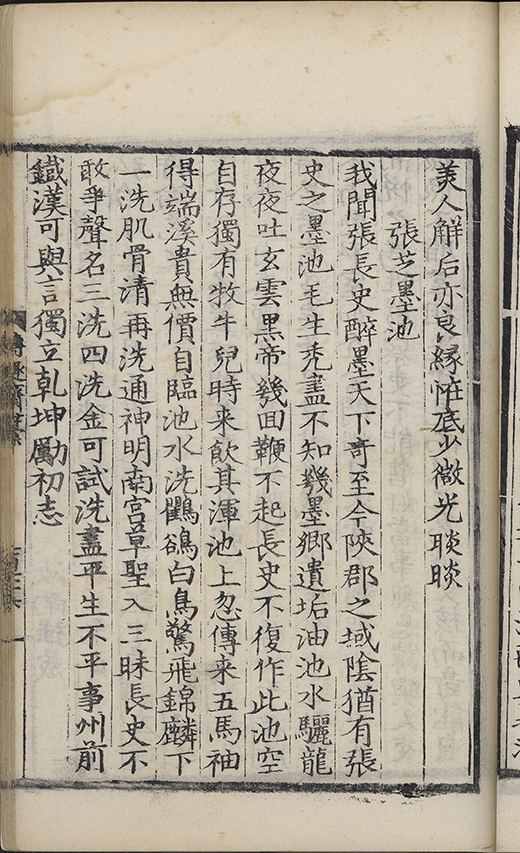 美人解后亦良縁恠底少微光睒睒
張芝墨池
我聞張長史醉墨天下奇至今陝郡之域陰猶有張
史之墨池毛生秃盡不知幾墨鄉遺垢油池水驪龍
夜夜吐玄雲黑帝幾回鞭不起長史不復作此池空
自存獨有牧牛兒時来飲其渾池上忽傳来五馬袖
得端溪貴無價自臨池水洗鸜鵒白鳥驚飛錦麟下
一洗肌骨清再洗通神明南宮草聖入三昧長史不
敢爭聲名三洗四洗金可試洗盡平生不平事州前
鐵漢可與言獨立乾坤勵初志